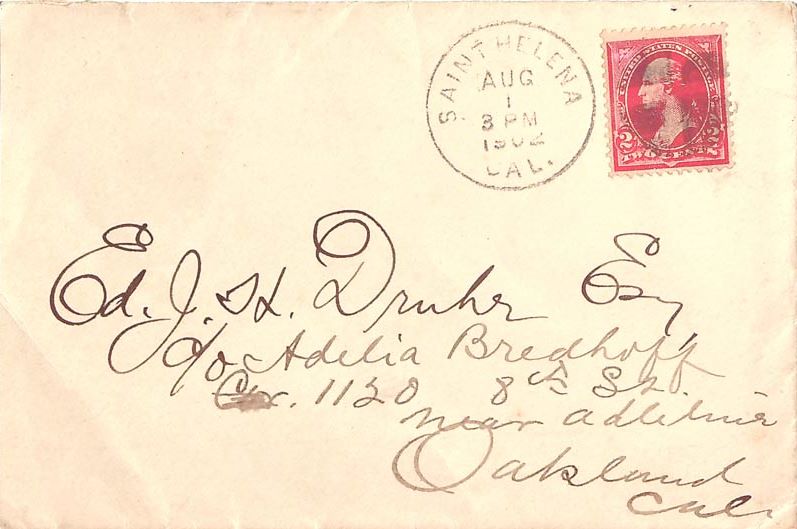 SAINT HELENA
AUG
1
3 PM
1902
CAL.
UNITED STATES POSTAGE
2 2
TWO CENTS
Ed. J. H. Druhe Esq
c/o Adelia Bredhoff
1120 8th St.
near Adeline
Oakland
Cal.